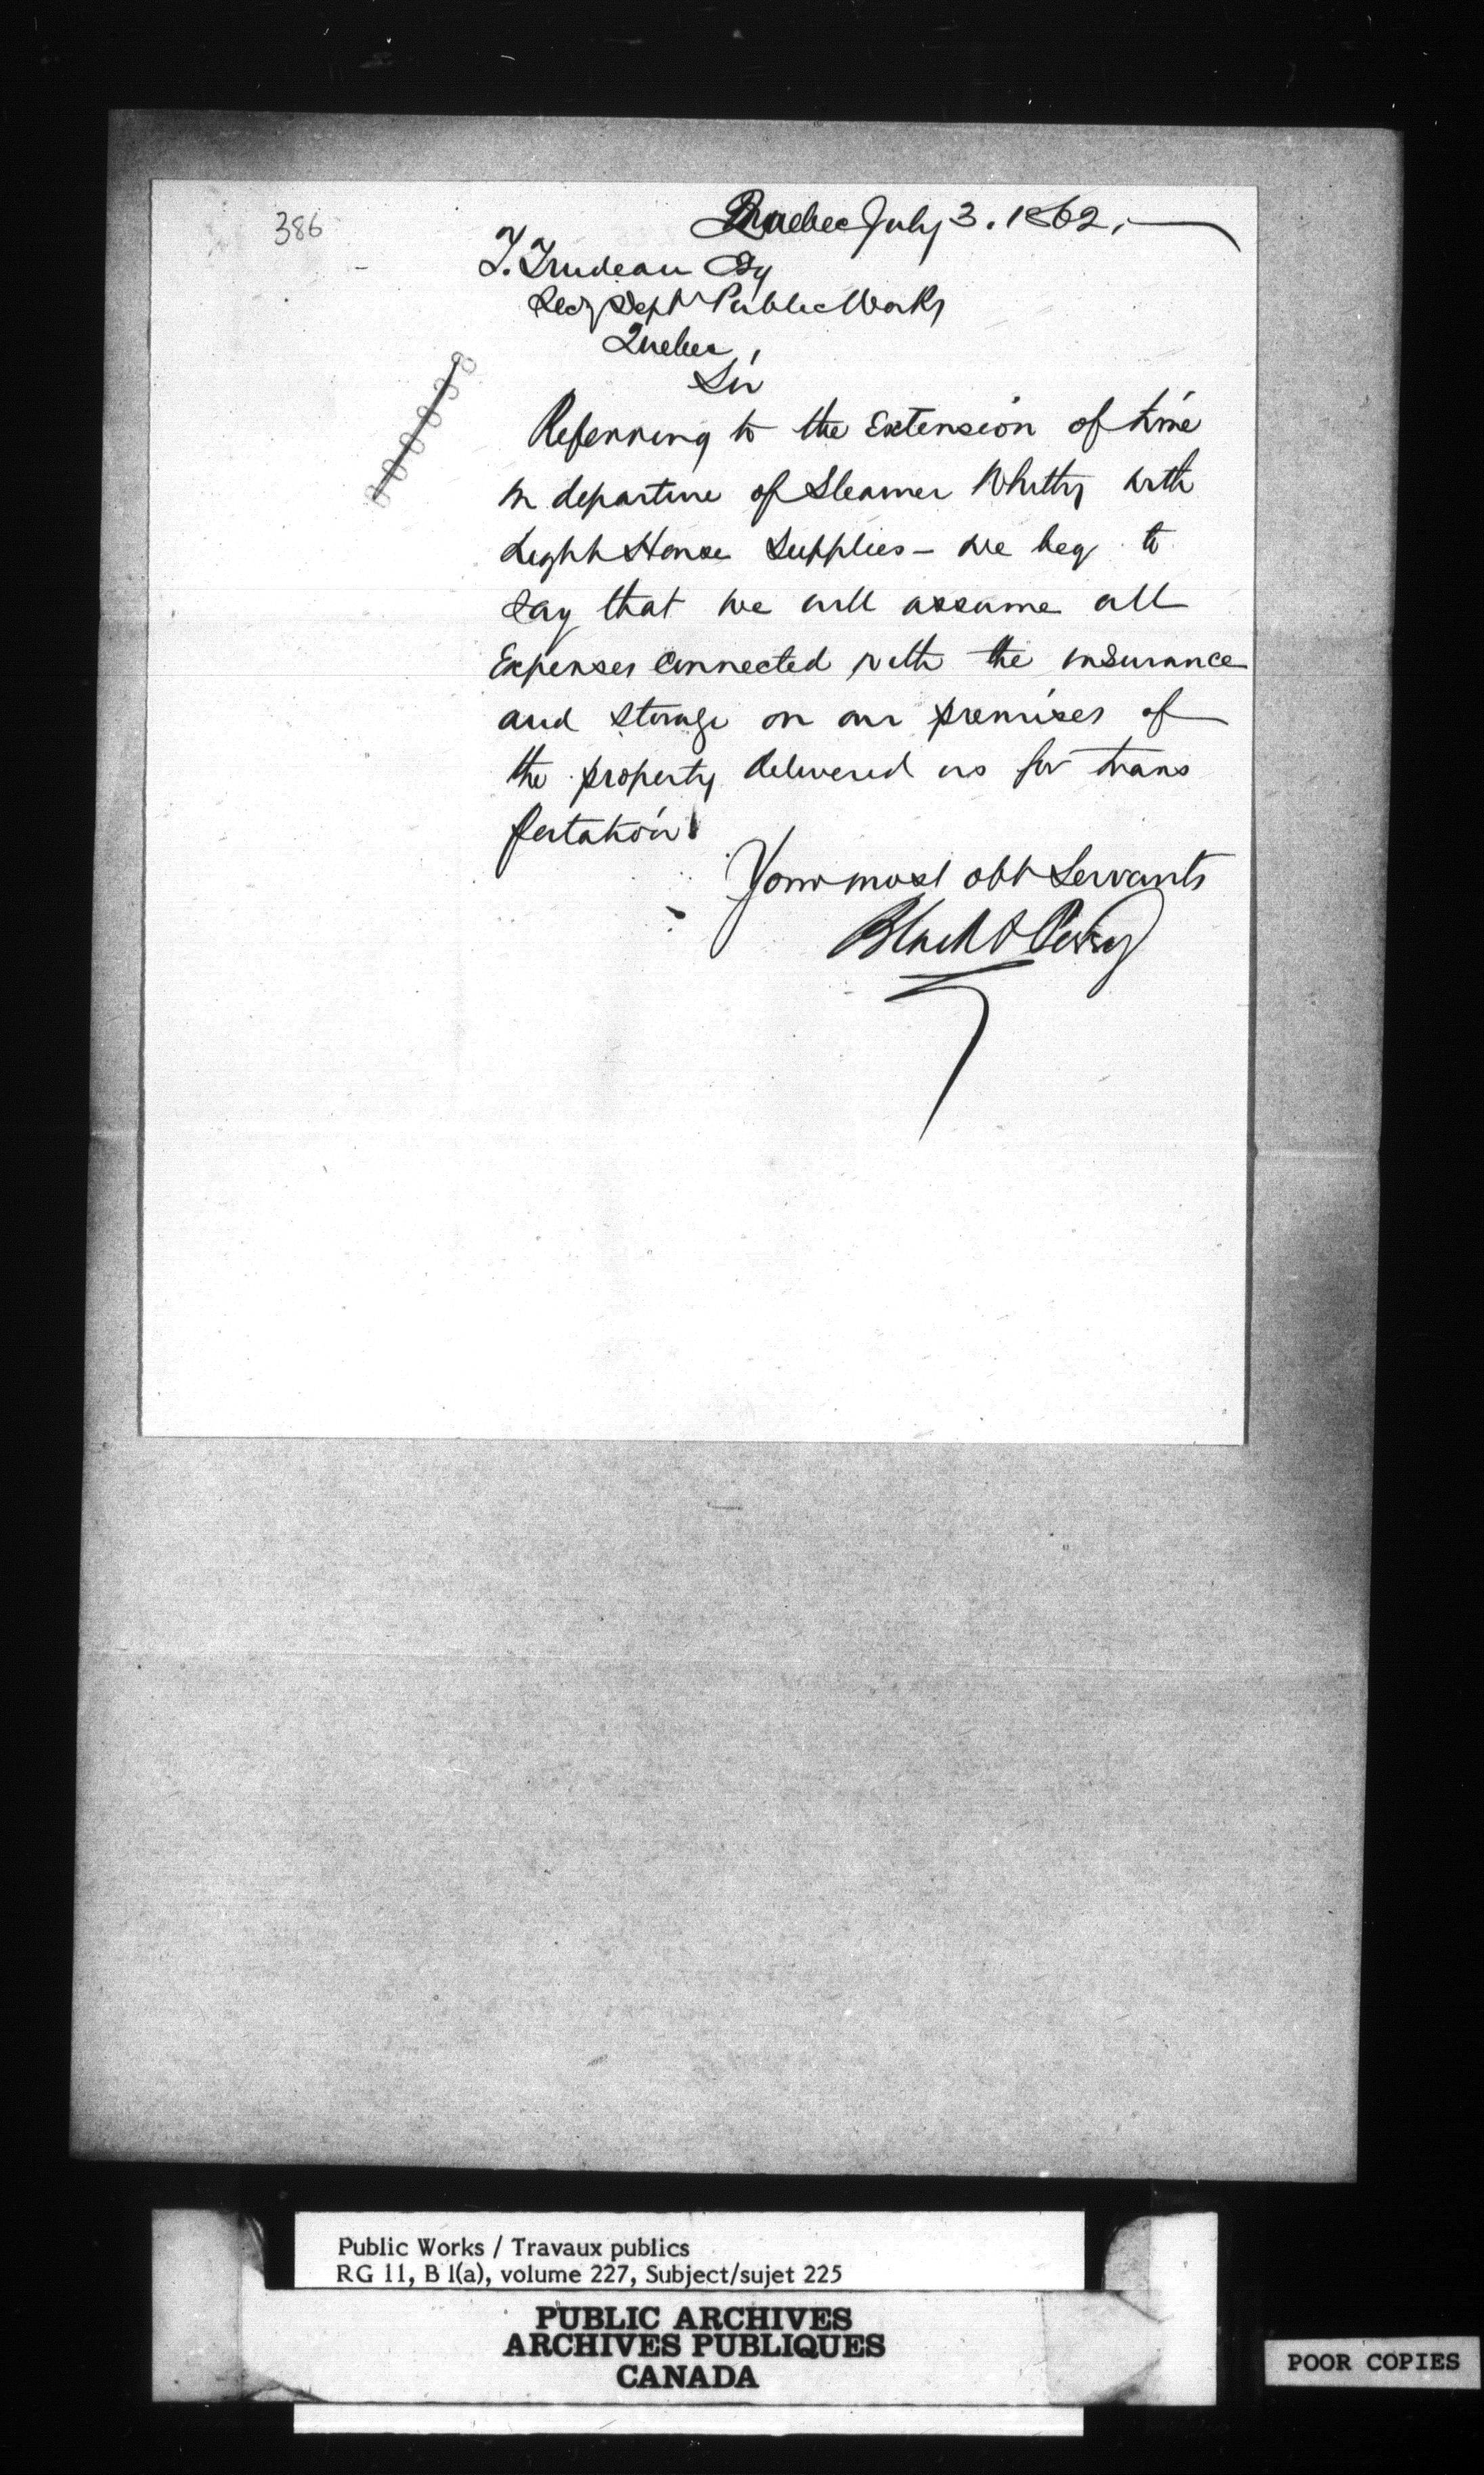 386
Quebec July 3. 1862.
T. Trudeau Esq
Secy Dept Public Works
Quebec,
Sir
Referring to the Extension of time
in departure of Steamer Whitby with
Light House Supplies - we beg to
say that we will assume all
Expenses connected with the insurance
and storage on our premises of
the property delivered us for trans
portation
Your most obt Servants
Black &
Public Works / Travaux publics
RG 11, B 1(a), volume 227, Subject/sujet 225
PUBLIC ARCHIVES
ARCHIVES PUBLIQUES
CANADA
POOR COPIES